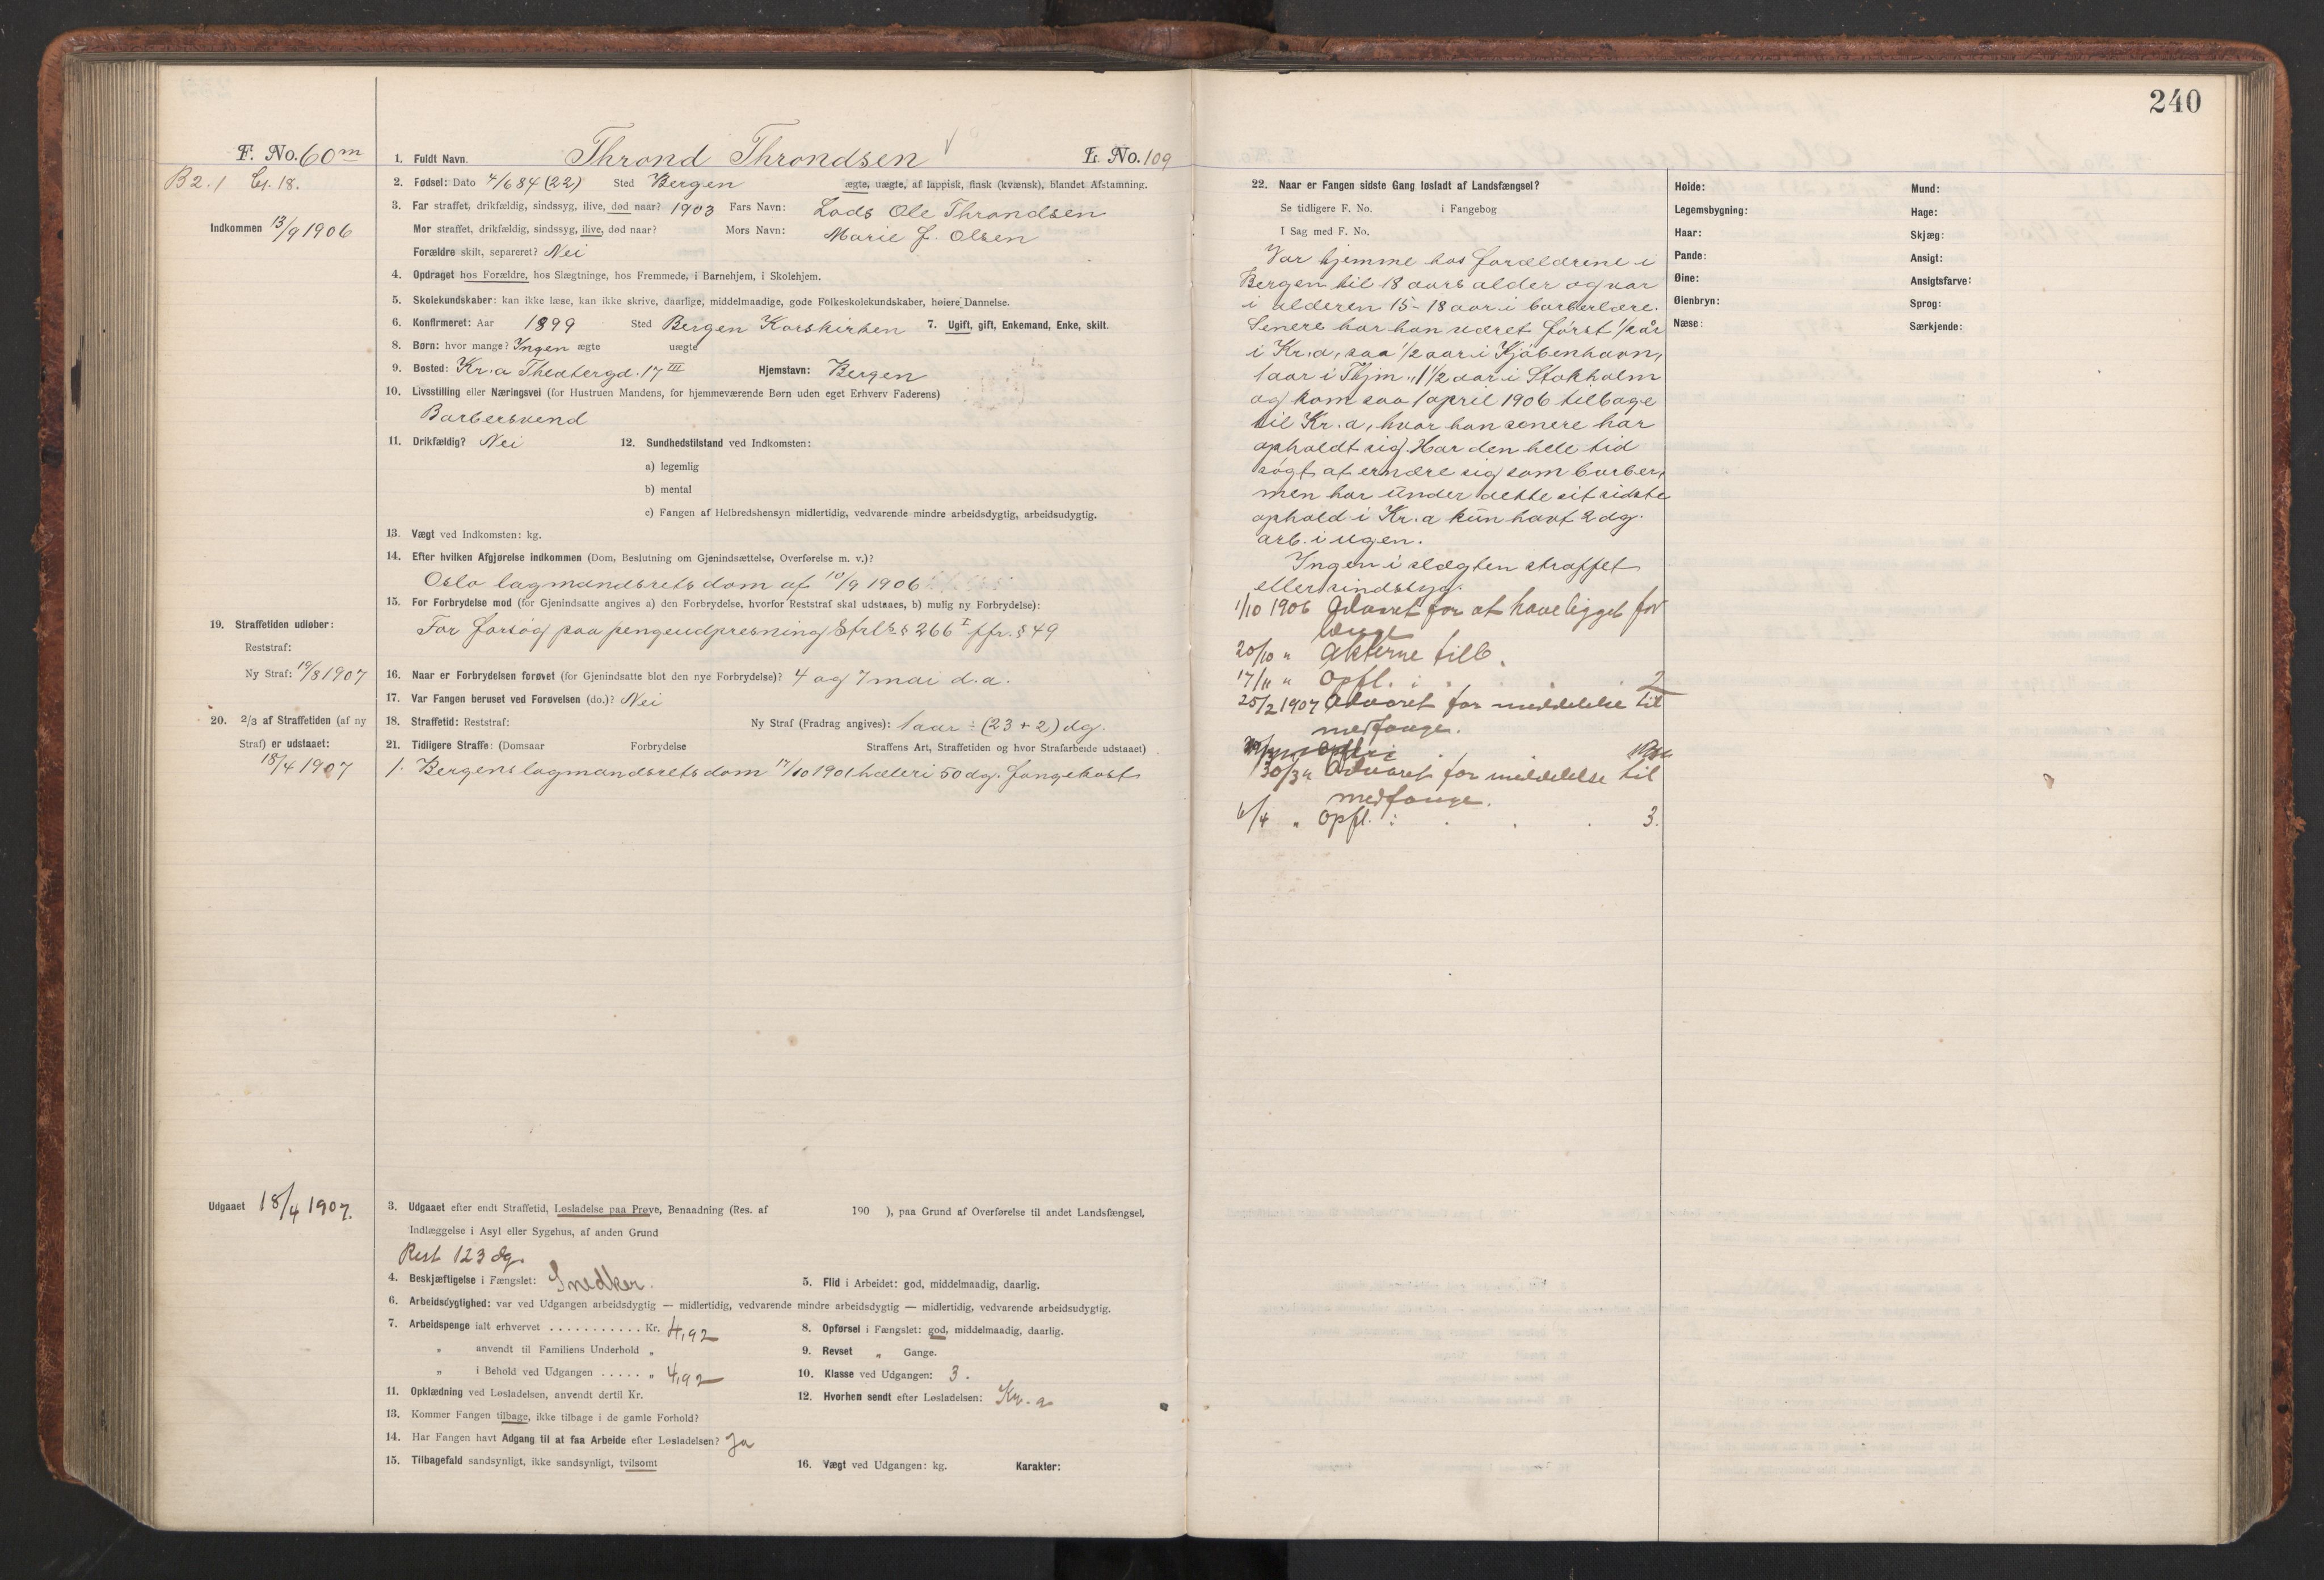 240
F. No. 60m
B 2. 1 Cr. 18.
Indkommen 13/9 1906
1. Fuldt Navn. Thrond Throndsen L. No. 109
2. Fødsel: Dato 4/6 84 (22) Sted Bergen ægte, uægte, af lappisk, finsk (kvænsk), blandet Afstamning.
3. Far straffet, drikfældig, sindssyg, ilive, død naar? 1903 Fars Navn: Lods Ole Throndsen
Mor straffet, drikfældig, sindssyg, ilive, død naar? Mors Navn: Marie J. Olsen
Forældre skilt, separeret? Nei
4. Opdraget hos Forældre, hos Slægtninge, hos Fremmede, i Barnehjem, i Skolehjem.
5. Skolekundskaber: kan ikke læse, kan ikke skrive, daarlige, middelmaadige, gode Folkeskolekundskaber, høiere Dannelse.
6. Konfirmeret: Aar 1899 Sted Bergen Korskirken 7. Ugift, gift, Enkemand, Enke, skilt.
8. Børn: hvor mange? Ingen ægte uægte
9. Bosted: Kr.a Theatergd. 17 III Hjemstavn: Bergen
10. Livsstilling eller Næringsvei (for Hustruen Mandens, for hjemmeværende Børn uden eget Erhverv Faderens)
Barbersvend
11. Drikfældig? Nei 12. Sundhedstilstand ved Indkomsten:
a) legemlig
b) mental
c) Fangen af Helbredshensyn midlertidig, vedvarende mindre arbeidsdygtig, arbeidsudygtig.
13. Vægt ved Indkomsten: kg.
14. Efter hvilken Afgjørelse indkommen (Dom, Beslutning om Gjenindsættelse, Overførelse m. v.)?
Oslo lagmandsrets dom af 10/9 1906
15. For Forbrydelse mod (for Gjenindsatte angives a) den Forbrydelse, hvorfor Reststraf skal udstaaes, b) mulig ny Forbrydelse):
For forsøg paa pengeudpresning Strl. § 266 I jfr. § 49
19. Straffetiden udløber:
Reststraf:
Ny Straf: 19/8 1907
16. Naar er Forbrydelsen forøvet (for Gjenindsatte blot den nye Forbrydelse)? 4 og 7 mai d.a.
17. Var Fangen beruset ved Forøvelsen (do.)? Nei
20. 2/3 af Straffetiden (af ny
Straf) er udstaaet:
18/4 1907
18. Straffetid: Reststraf: Ny Straf (Fradrag angives): 1 aar ÷ (23 + 2) dg.
21. Tidligere Straffe: (Domsaar Forbrydelse Straffens Art, Straffetiden og hvor Strafarbeide udstaaet)
1. Bergens lagmandsrets dom 17/10 1901 hæleri 50 dg. fangekost
Udgaaet 18/4 1907.
3. Udgaaet efter endt Straffetid, Løsladelse paa Prøve, Benaadning (Res. af 190 ), paa Grund af Overførelse til andet Landsfængsel,
Indlæggelse i Asyl eller Sygehus, af anden Grund
Rest 123 dg.
4. Beskjæftigelse i Fængslet: Snedker. 5. Flid i Arbeidet: god, middelmaadig, daarlig.
6. Arbeidsdygtighed: var ved Udgangen arbeidsdygtig — midlertidig, vedvarende mindre arbeidsdygtig — midlertidig, vedvarende arbeidsudygtig.
7. Arbeidspenge ialt erhvervet . . . . . . . . . . . Kr. 4,92 8. Opførsel i Fængslet: god, middelmaadig, daarlig.
„ anvendt til Familiens Underhold „ 9. Revset „ Gange.
„ i Behold ved Udgangen . . . . . „ 4,92 10. Klasse ved Udgangen: 3.
11. Opklædning ved Løsladelsen, anvendt dertil Kr. 12. Hvorhen sendt efter Løsladelsen: Kr.a
13. Kommer Fangen tilbage, ikke tilbage i de gamle Forhold?
14. Har Fangen havt Adgang til at faa Arbeide efter Løsladelsen? Ja
15. Tilbagefald sandsynligt, ikke sandsynligt, tvilsomt 16. Vægt ved Udgangen: kg. Karakter:
22. Naar er Fangen sidste Gang løsladt af Landsfængsel?
Se tidligere F. No. i Fangebog
I Sag med F. No.
Var hjemme hos forældrene i
Bergen til 18 aars alder og var
i alderen 15-18 aar i barberlære.
Senere har han været først 1/2 år
i Kr.a, saa 1/2 aar i Kjøbenhavn,
1 aar i Thjm., 1 1/2 aar i Stokholm
og kom saa 1 april 1906 tilbage
til Kr.a, hvor han senere har
opholdt sig. Har den hele tid
søgt at ernære sig som barber,
men har under dette sit sidste
ophold i Kr.a kun havt 2 dg.
arb. i ugen.
Ingen i slægten straffet
eller sindssyg.
1/10 1906 Advaret for at have ligget for
længe
20/10 " Akterne tilb.
17/11 " Opfl. i . . . 2
25/2 1907 Advaret for meddelelse til
medfange.
30/3 " Advaret for meddelelse til
medfange.
6/4 " Opfl. i . . . 3.
Høide: Mund:
Legemsbygning: Hage:
Haar: Skjæg:
Pande: Ansigt:
Øine: Ansigtsfarve:
Øienbryn: Sprog:
Næse: Særkjende: